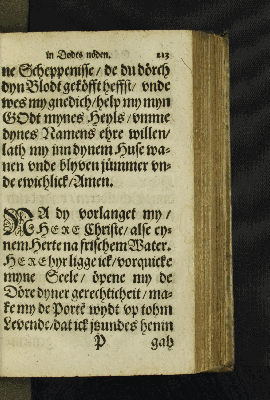 in Dodes nöden. 213
ne Scheppenisse / de du dörch
dyn Blodt geköfft heffst / vnde
wes my gnedich / help my myn
GOdt mynes Heyls / vmme
dynes Namens ehre willen /
lath my inn dynem Huse wa-
nen vnde blyven jümmer vn-
de ewichlick / Amen.
NA dy vorlanget my /
HERE Christe / alse ey-
nem Herte na frischem Water.
HERE hyr ligge ick / vorquicke
myne Seele / öpene my de
Döre dyner gerechticheit / ma-
ke my de Porte wydt vp tohm
Levende / dat ick jtzundes henin
P gah